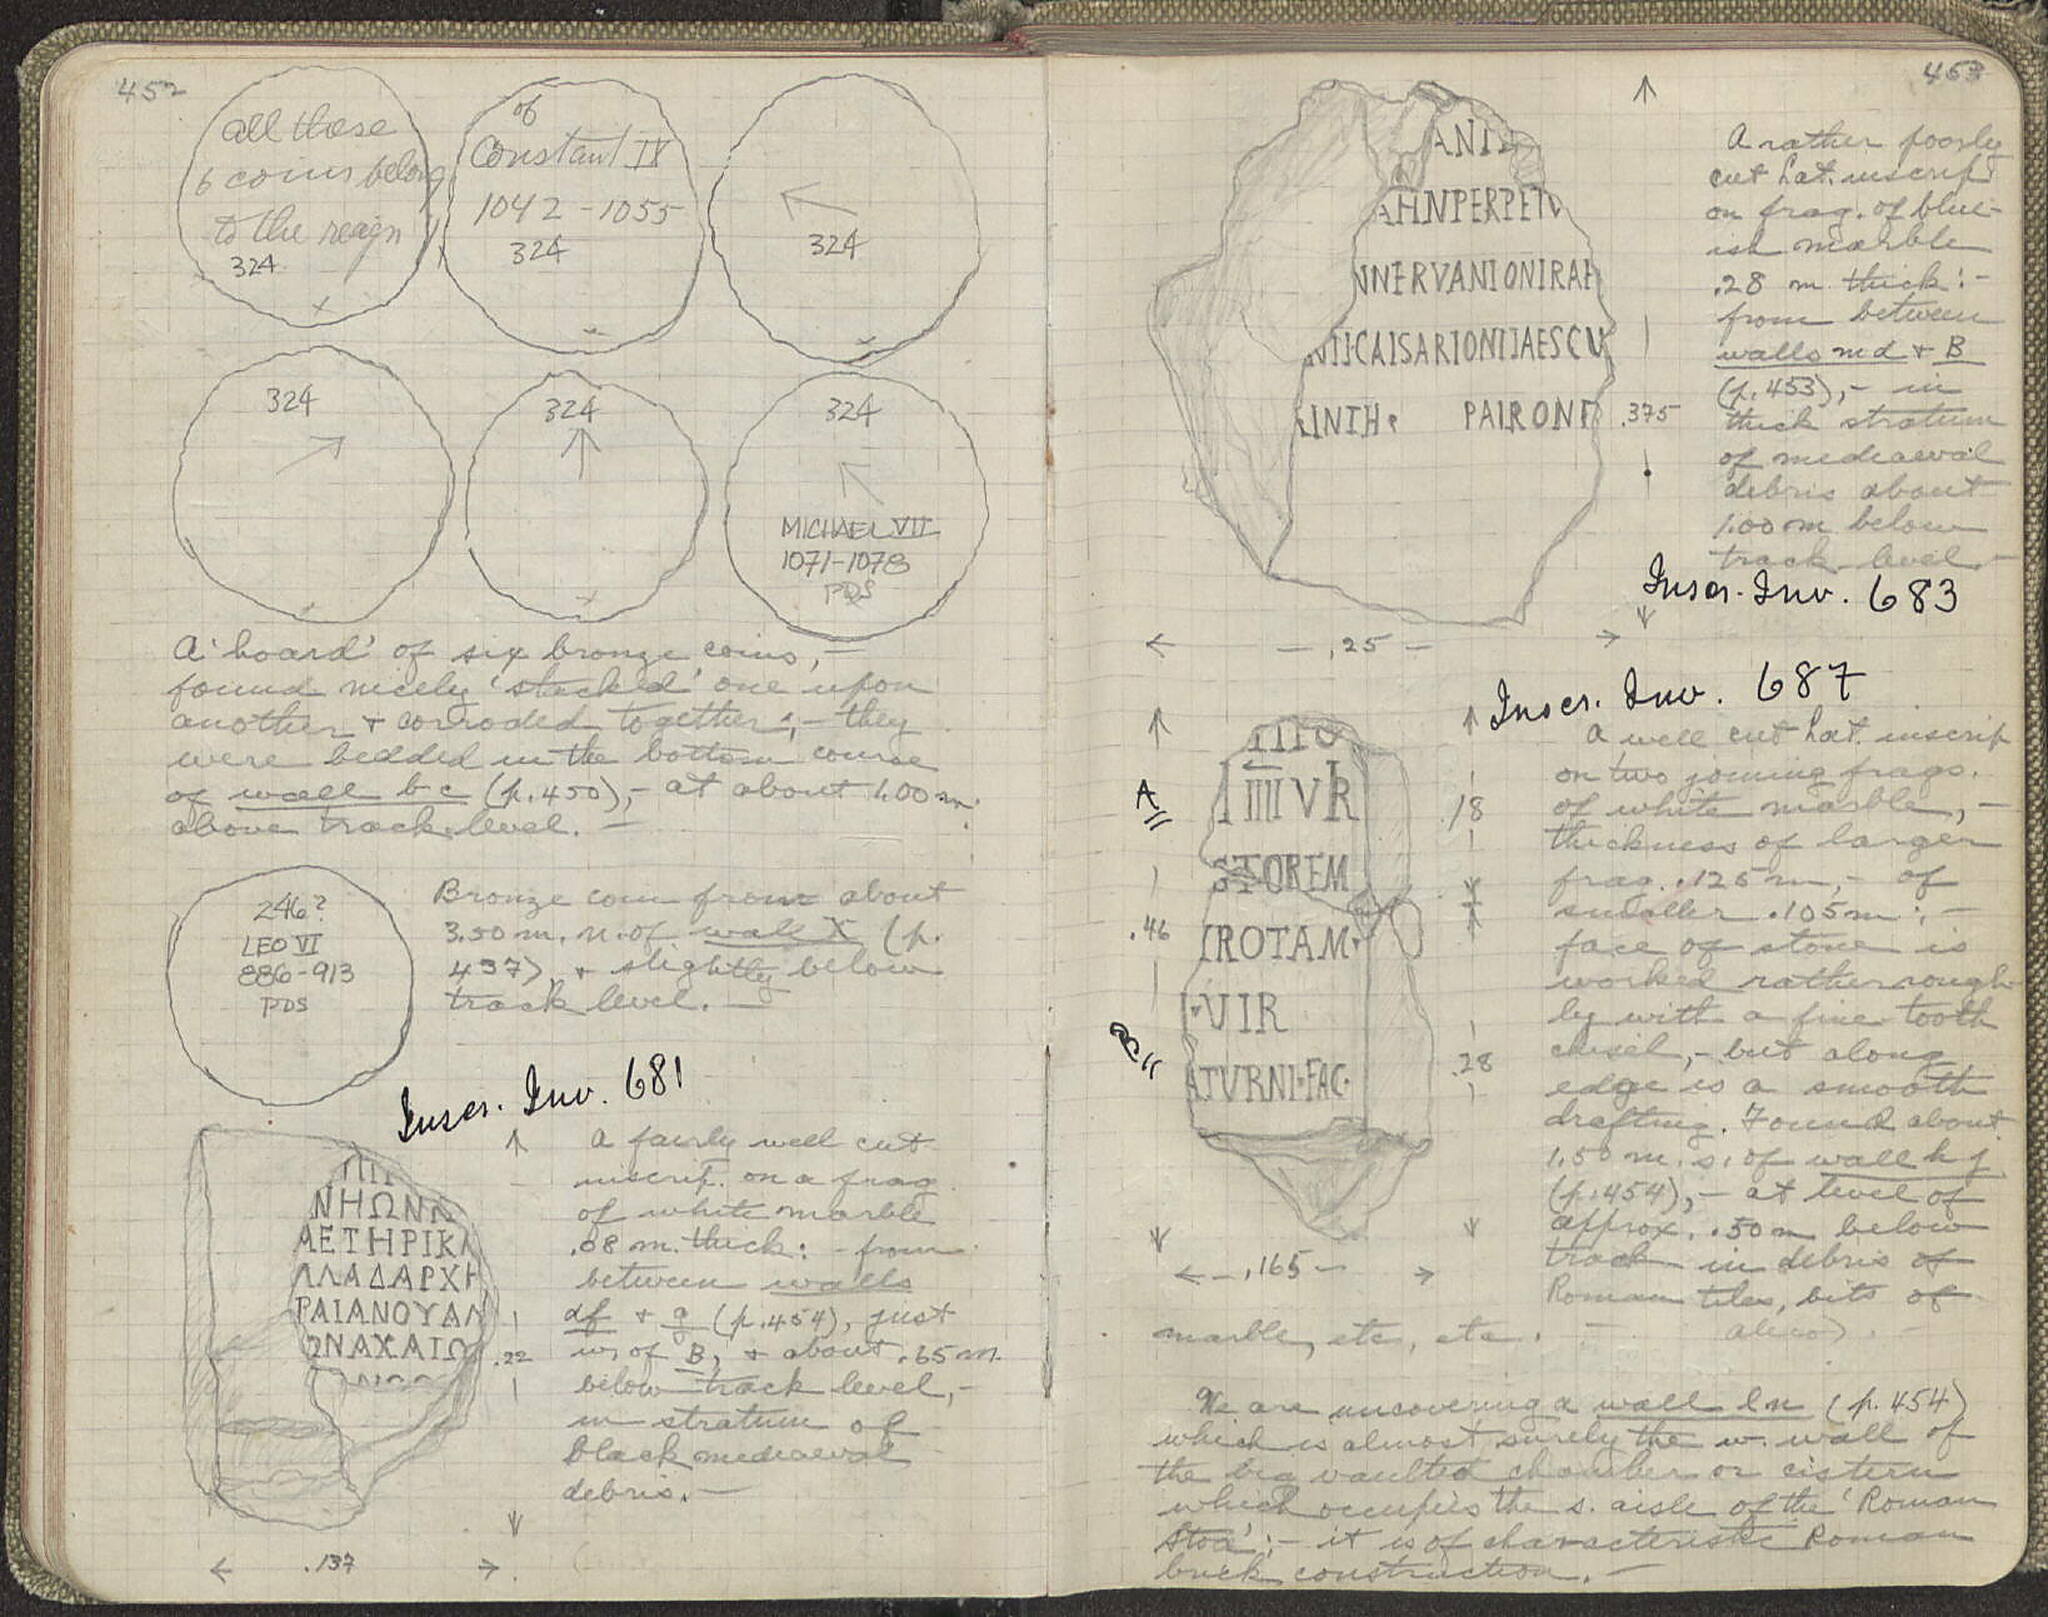 452
all these
6 coins belong
to the reign
324
of
Constant IX
1042 - 1055
324
324
324
324
324
MICHAEL VII
1071-1078
PDS
A 'hoard' of six bronze coins, -
found nicely 'stacked' one upon
another & corroded together; - they
were bedded in the bottom course
of wall bc (p. 450), - at about 1.00 m.
above track level. -
246?
LEO VI
886-913
PDS
Bronze coin from about
3.50 m. n. of wall X (p.
437), & slightly below
track level. -
Inscr. Inv. 681
ΝΗΩΝΑ
ΑΕΤΗΡΙΚΑ
ΛΛΑΔΑΡΧΗ
ΡΑΙΑΝΟΥΑΛ
ΩΝΑΧΑΙΩ
.22
.137
A fairly well cut
inscrip. on a frag.
of white marble
.08 m. thick: - from
between walls
df & g (p. 454), just
w. of B, & about .65 m.
below track level, -
in stratum of
black mediaeval
debris. -
453
ANI
AHNPERPETV
NNERVANIONIRAE
NTIICAISARIONIIAESCU
LINTH PAIRONI
.375
.25
A rather poorly
cut Lat. inscrip.
on frag. of blue-
ish marble
.28 m thick: -
from between
walls md & B
(p. 453), - in
thick stratum
of mediaeval
debris about
1.00 m below
track level. -
Inscr. Inv. 683
Inscr. Inv. 687
A
IIIIVR
STOREM
IROTAM·
I·VIR
ATVRNI·FAC·
.46
.18
.28
.165
A well cut Lat. inscrip
on two joining frags.
of white marble, -
thickness of larger
frag. .125 m, - of
smaller .105 m: -
face of stone is
worked rather rough-
ly with a fine tooth
chisel, - but along
edge is a smooth
drafting. Found about
1.50 m. s. of wall kj
(p. 454), - at level of
approx. .50 m below
track in debris of
Roman tiles, bits of
marble, etc, etc. -
We are uncovering a wall ln (p. 454)
which is almost surely the w. wall of
the big vaulted chamber or cistern
which occupies the s. aisle of the 'Roman
Stoa'; - it is of characteristic Roman
brick construction. -